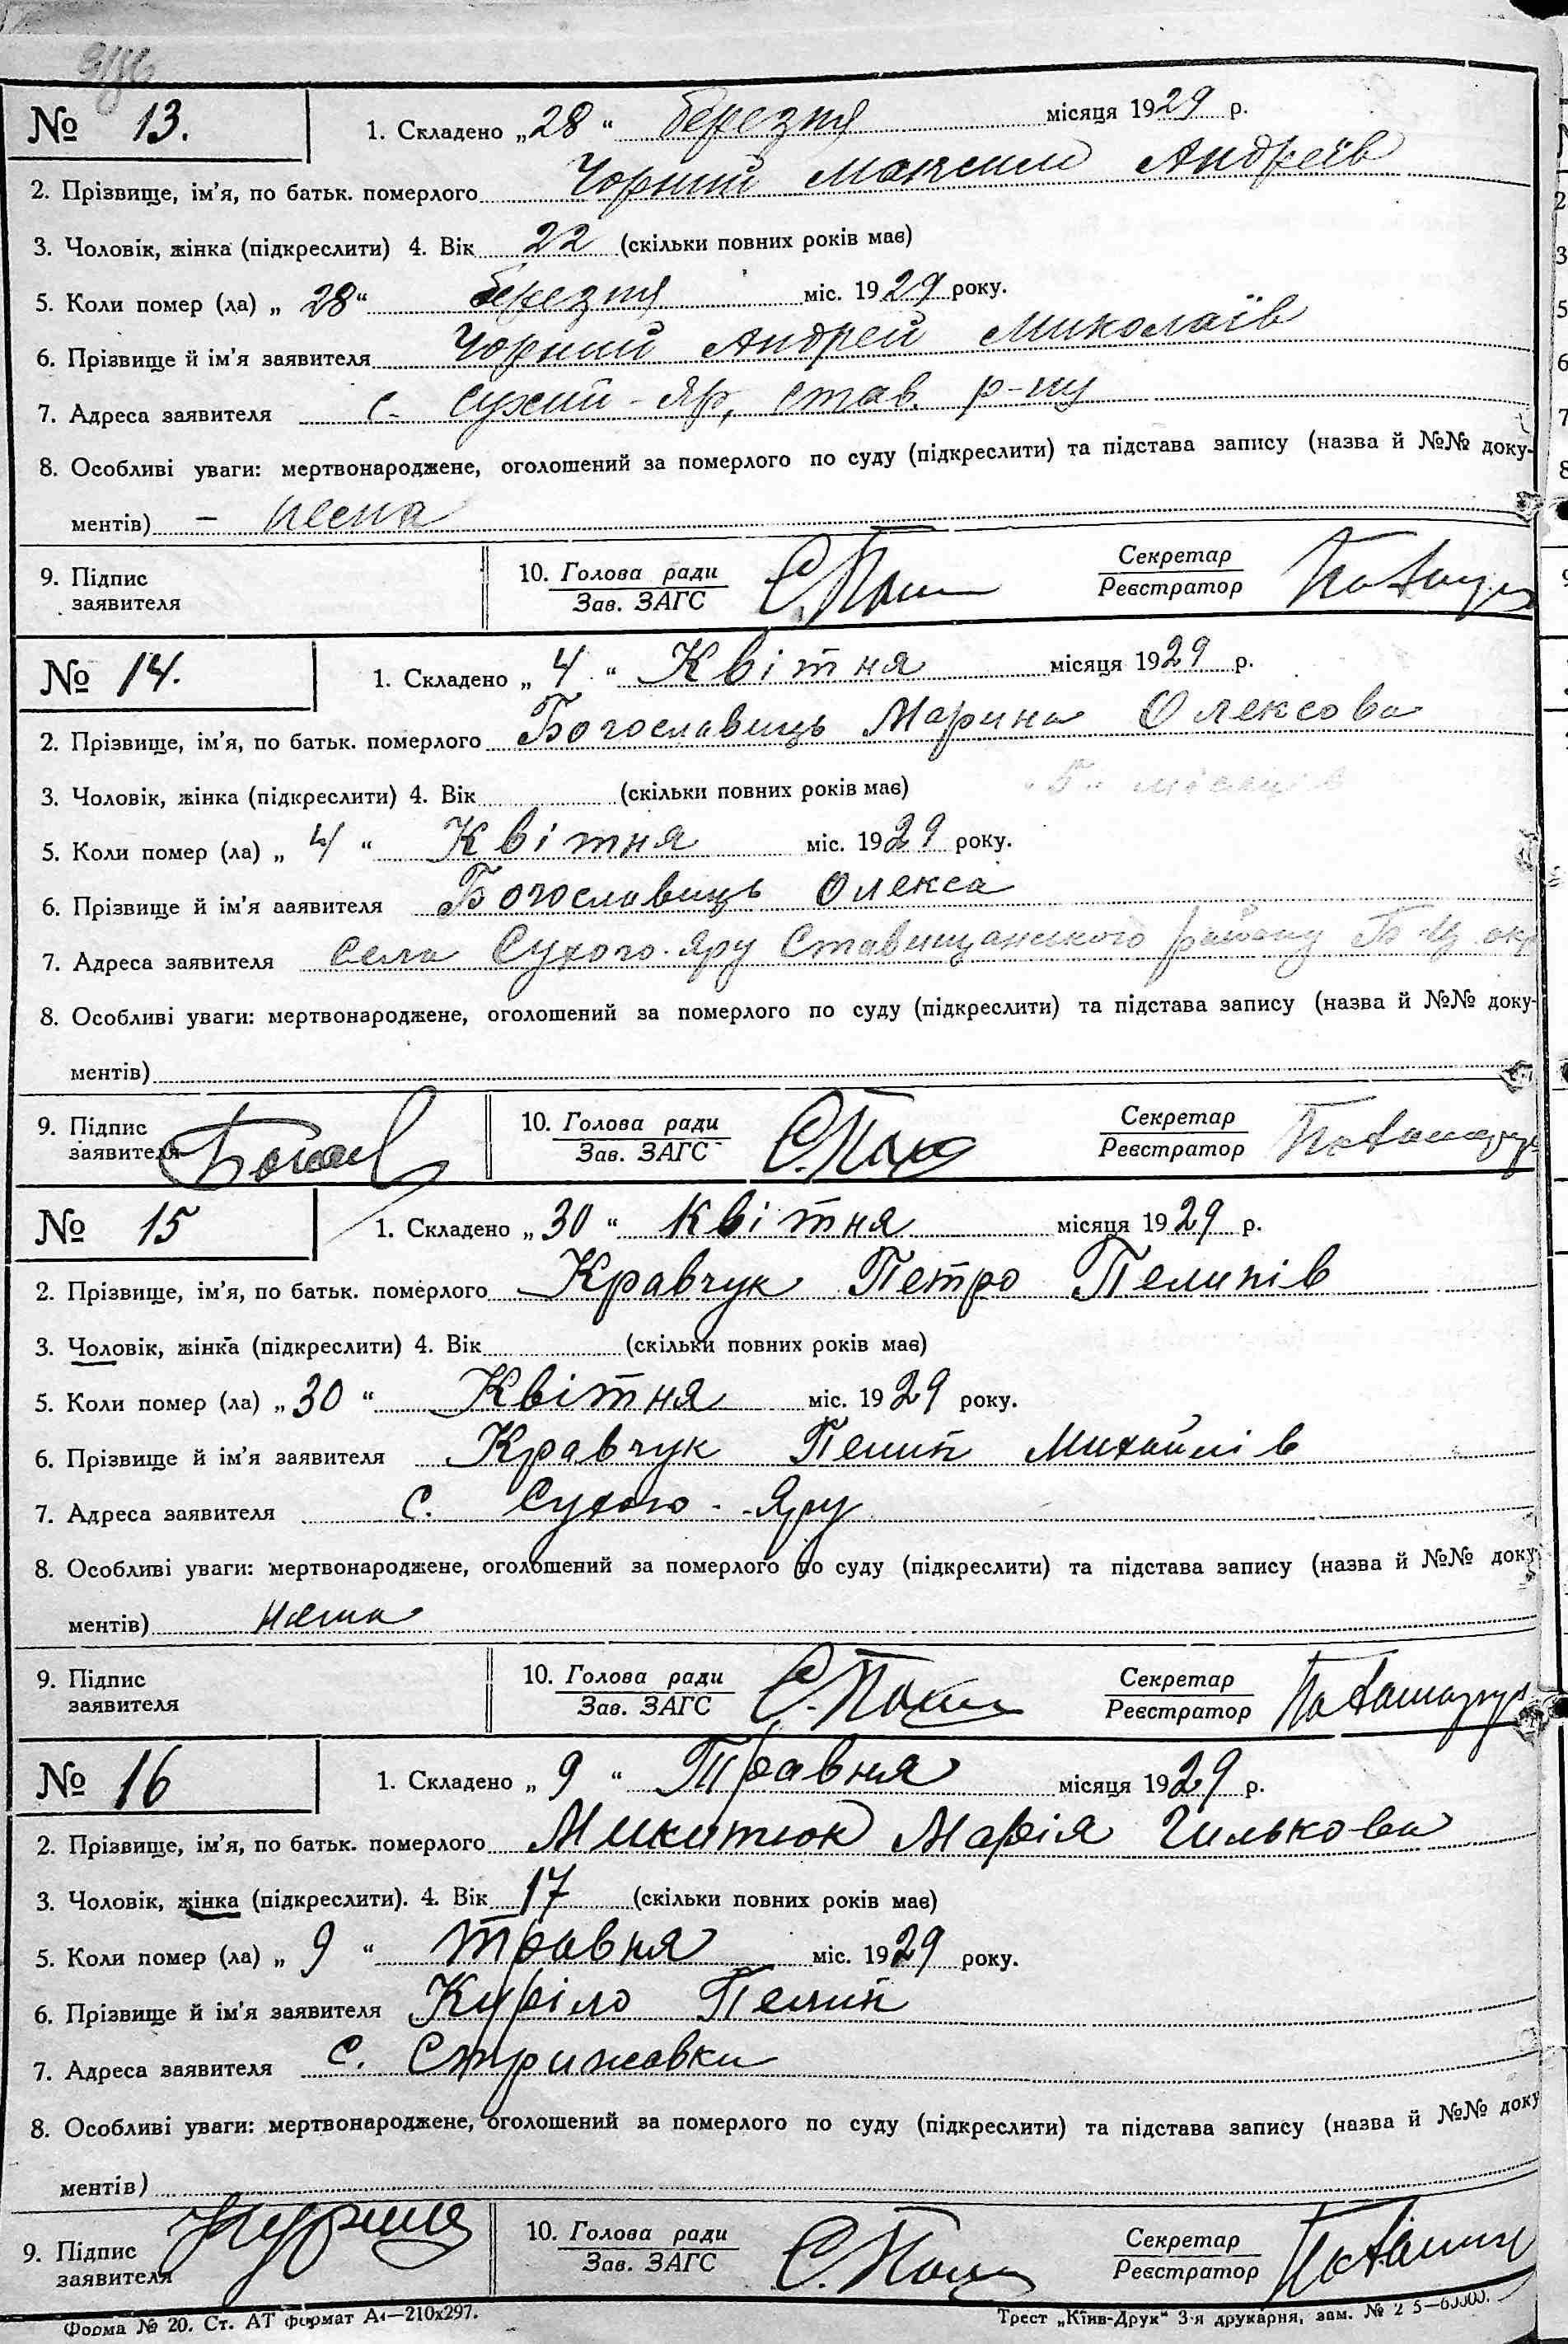 № 13.
1. Складено „28“ березня місяця 1929 р.
2. Прізвище, ім'я, по батьк. померлого Чорний Максим Андреїв
3. Чоловік, жінка (підкреслити) 4. Вік 22 (скільки повних років має)
5. Коли помер (ла) „28“ березня міс. 1929 року.
6. Прізвище й ім'я заявителя Чорний Андрей Миколаїв
7. Адреса заявителя с. Сухий-Яр, Став. р-ну
8. Особливі уваги: мертвонароджене, оголошений за померлого по суду (підкреслити) та підстава запису (назва й №№ доку-
ментів) –
9. Підпис заявителя
10. Голова ради Зав. ЗАГС
Секретар Реєстратор
№ 14.
1. Складено „4“ Квітня місяця 1929 р.
2. Прізвище, ім'я, по батьк. померлого Богославиць Марина Олексова
3. Чоловік, жінка (підкреслити) 4. Вік (скільки повних років має) „5“ місяців
5. Коли помер (ла) „4“ Квітня міс. 1929 року.
6. Прізвище й ім'я ааявителя Богославиць Олекса
7. Адреса заявителя села Сухого-Яру Ставищанського району Б-Ц. окр
8. Особливі уваги: мертвонароджене, оголошений за померлого по суду (підкреслити) та підстава запису (назва й №№ доку-
ментів)
9. Підпис заявителя
10. Голова ради Зав. ЗАГС
Секретар Реєстратор
№ 15
1. Складено „30“ Квітня місяця 1929 р.
2. Прізвище, ім'я, по батьк. померлого Кравчук Петро Пелипів
3. Чоловік, жінка (підкреслити) 4. Вік (скільки повних років має)
5. Коли помер (ла) „30“ Квітня міс. 1929 року.
6. Прізвище й ім'я заявителя Кравчук Пелип Михайлів
7. Адреса заявителя с. Сухого-Яру
8. Особливі уваги: мертвонароджене, оголошений за померлого по суду (підкреслити) та підстава запису (назва й №№ доку
ментів) нема
9. Підпис заявителя
10. Голова ради Зав. ЗАГС
Секретар Реєстратор
№ 16
1. Складено „9“ Травня місяця 1929 р.
2. Прізвище, ім'я, по батьк. померлого Микитюк Марія Гилькова
3. Чоловік, жінка (підкреслити). 4. Вік 17 (скільки повних років має)
5. Коли помер (ла) „9“ травня міс. 1929 року.
6. Прізвище й ім'я заявителя Куріло Пелип
7. Адреса заявителя с. Стрижавки
8. Особливі уваги: мертвонароджене, оголошений за померлого по суду (підкреслити) та підстава запису (назва й №№ доку
ментів)
9. Підпис заявителя
10. Голова ради Зав. ЗАГС
Секретар Реєстратор
Форма № 20. Ст. АТ формат А4—210х297.
Трест „Київ-Друк“ 3-я друкарня, зам. №